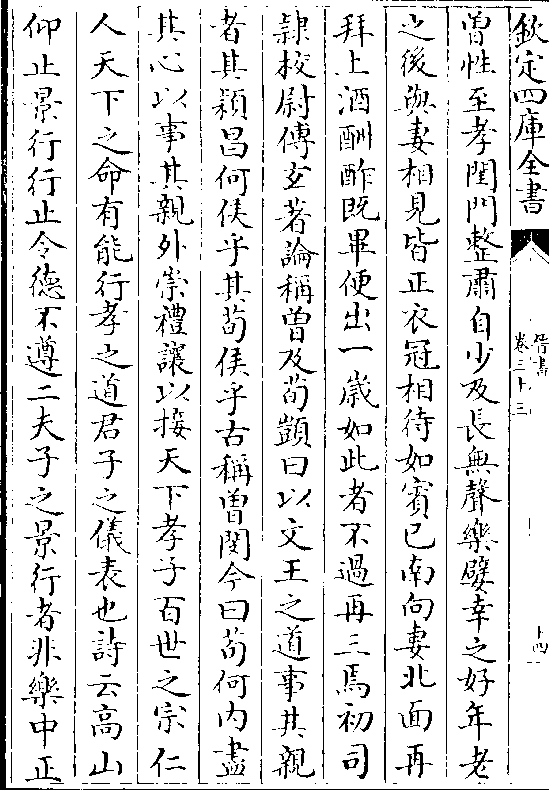 欽定四庫全書
晉書
卷三十三
十四
曾性至孝閨門整肅自少及長無聲樂嬖幸之好年老
之後與妻相見皆正衣冠相待如賓己南向妻北面再
拜上酒酬酢既畢便出一歲如此者不過再三焉初司
隷校尉傅玄著論稱曾及荀顗曰以文王之道事其親
者其潁昌何侯乎其荀侯乎古稱曽閔今曰荀何内盡
其心以事其親外崇禮讓以接天下孝子百世之宗仁
人天下之命有能行孝之道君子之儀表也詩云高山
仰止景行行止令德不遵二夫子之景行者非樂中正